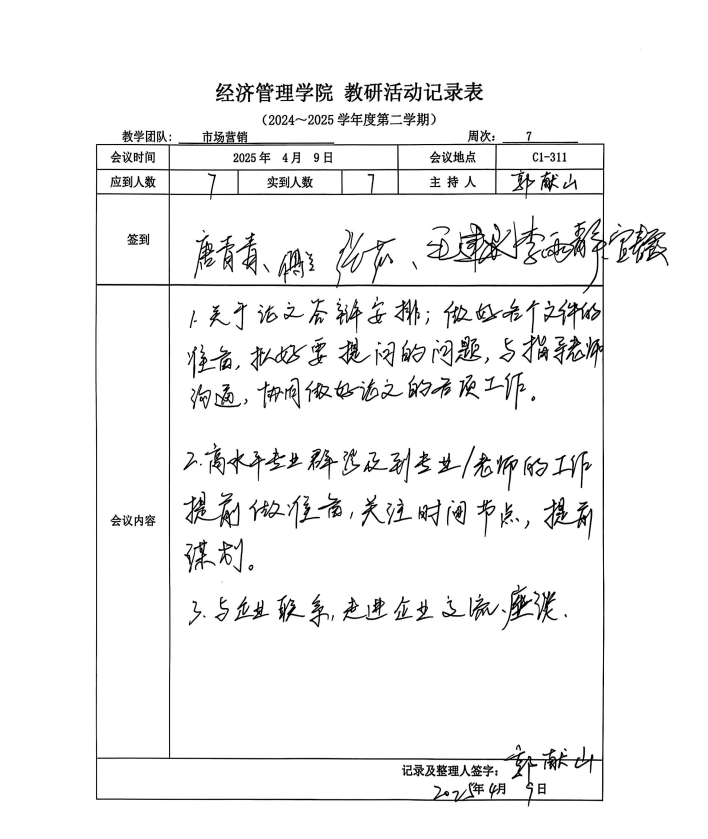 经济管理学院 教研活动记录表
（2024～2025 学年度第二学期）
教学团队： 市场营销 周次： 7
会议时间 2025 年 4 月 9 日 会议地点 C1-311
应到人数 7 实到人数 7 主 持 人 郭献山
签到 唐青青、 张茹、
1.关于论文答辩安排；做好各个文件的
准备，拟好要提问的问题，与指导老师
沟通，协同做好论文的各项工作。
2.高水平专业群涉及到专业/老师的工作
会议内容 提前做准备，关注时间节点，提前
谋划。
3.与企业联系，走进企业交流、座谈.
记录及整理人签字： 郭献山
2025年 4月 9日